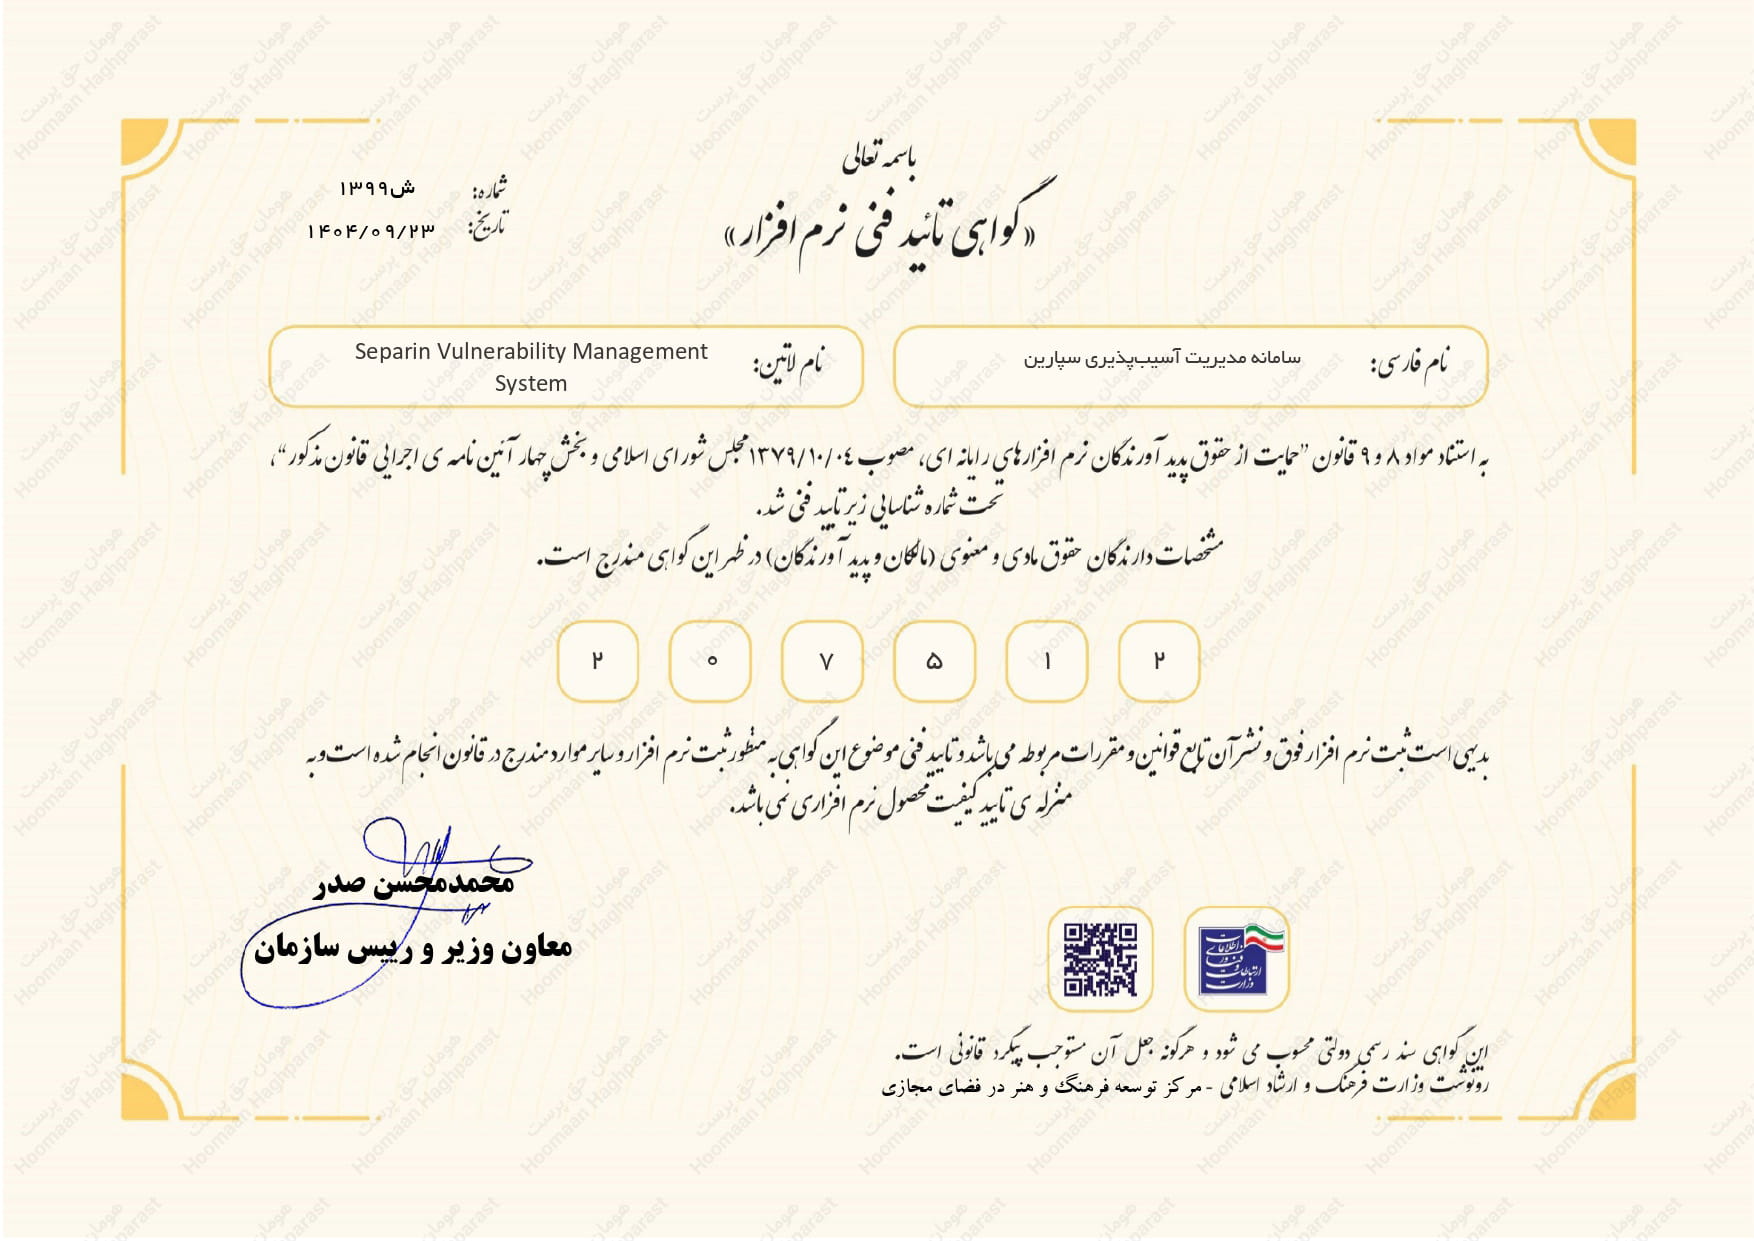 باسمه تعالی
«گواهی تائید فنی نرم افزار»
شماره: ش۱۳۹۹
تاریخ: ۱۴۰۴/۰۹/۲۳
نام فارسی: سامانه مدیریت آسیب‌پذیری سپارین
نام لاتین: Separin Vulnerability Management
System
به استناد مواد ۸ و ۹ قانون "حمایت از حقوق پدید آورندگان نرم افزارهای رایانه ای، مصوب ۱۳۷۹/۱۰/۰۴ مجلس شورای اسلامی و بخش چهار آئین نامه ی اجرایی قانون مذکور"،
تحت شماره شناسایی زیر تایید فنی شد.
مشخصات دارندگان حقوق مادی و معنوی (مالکان و پدید آورندگان) در ظهر این گواهی مندرج است.
۲ ۰ ۷ ۵ ۱ ۲
بدیهی است ثبت نرم افزار فوق و نشر آن تابع قوانین و مقررات مربوطه می باشد و تایید فنی موضوع این گواهی به منظور ثبت نرم افزار و سایر موارد مندرج در قانون انجام شده است و به
منزله ی تایید کیفیت محصول نرم افزاری نمی باشد.
محمدمحسن صدر
معاون وزیر و رییس سازمان
وزارت
ارتباطات و
فناوری
اطلاعات
این گواهی سند رسمی دولتی محسوب می شود و هرگونه جعل آن مستوجب پیگرد قانونی است.
رونوشت وزارت فرهنگ و ارشاد اسلامی - مرکز توسعه فرهنگ و هنر در فضای مجازی
هومان حق پرست
Hoomaan Haghparast